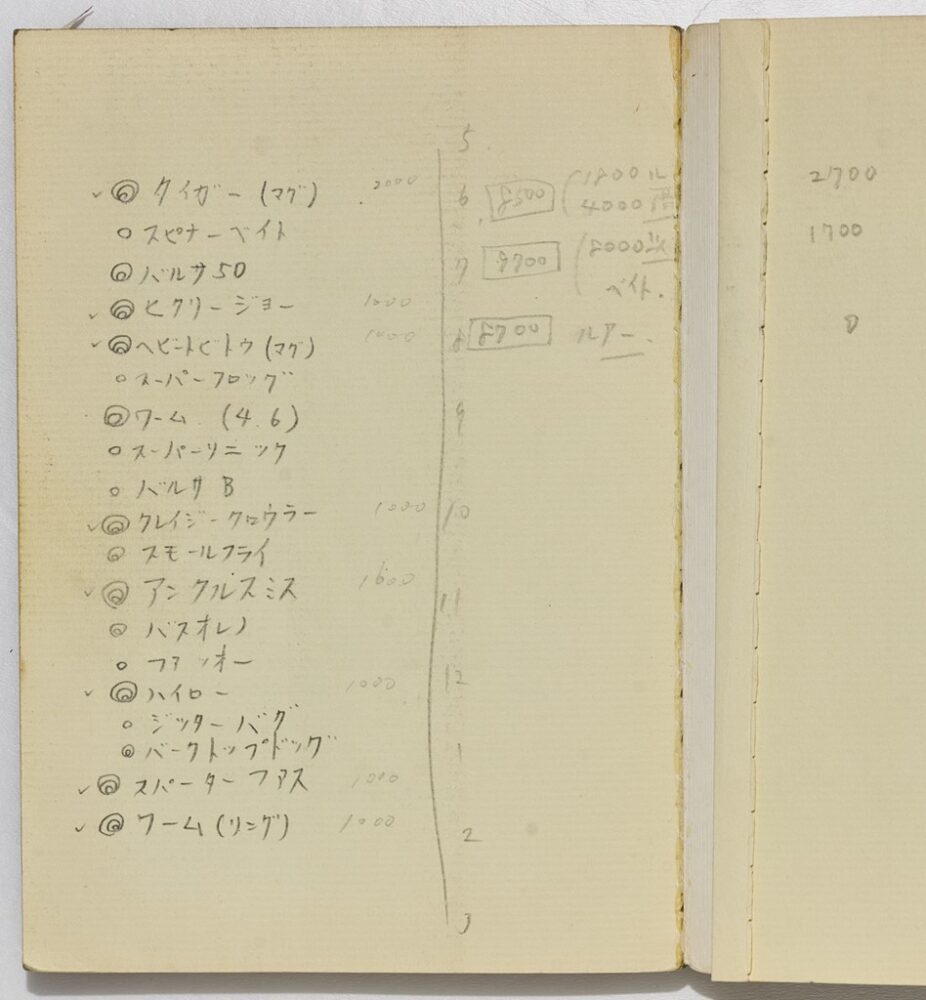 ✓ ◎ タイガー (マグ) 2000
○ スピナーベイト
◎ バルサ50
✓ ◎ ヒクリージョー 1000
✓ ◎ ヘビートビトゥ (マグ) 1000
○ スーパーフロッグ
◎ ワーム (4.6)
○ スーパーソニック
○ バルサ B
✓ ◎ クレイジークロウラー 1000
◎ スモールフライ
✓ ◎ アンクルスミス 1600
◎ バスオレノ
○ ファッオー
✓ ◎ ハイロー 1000
○ ジッターバグ
◎ バークトップドッグ
✓ ◎ スパーターファス 1000
✓ ◎ ワーム (リング) 1000
5
6 (1800 ル
4000
7
ベイト.
8 ルアー.
9
10
11
12
1
2
3
21700
1700
0